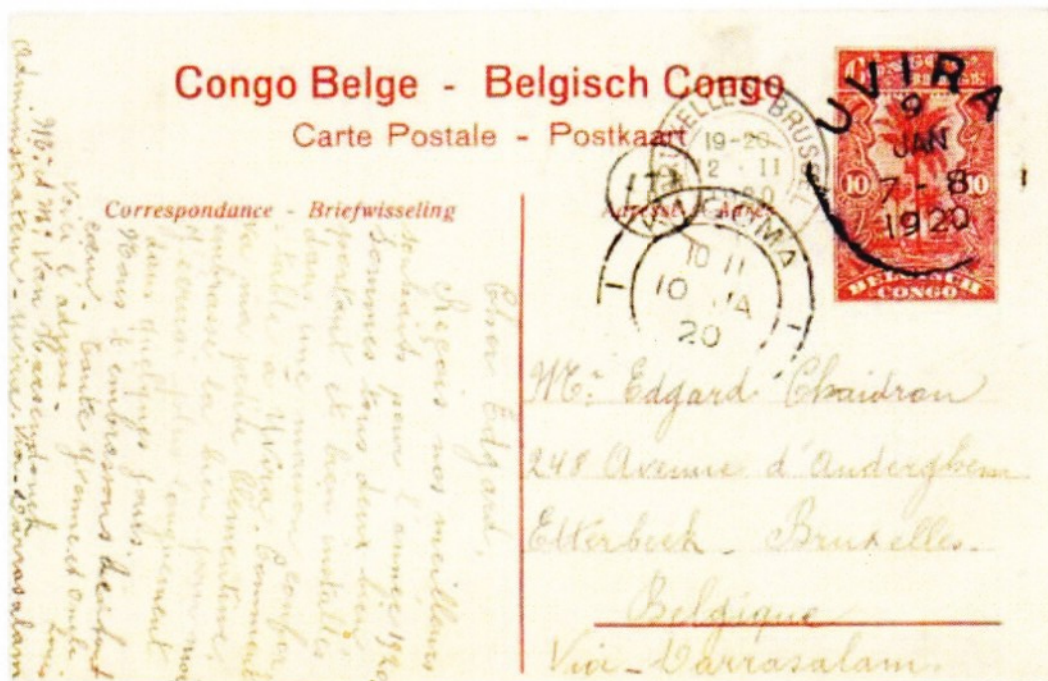 Congo Belge - Belgisch Congo
Carte Postale - Postkaart
Correspondance - Briefwisseling
BELGISCH
CONGO
10 10
UVIRA
9
JAN
7-8
1920
19-20
12 · 11
10 11
10 JA
20
Mr. Edgard Chaidron
248 Avenue d'Auderghem
Etterbeek - Bruxelles.
Belgique
Via - Darrasalam.
Cher Edgard,
Reçois nos meilleurs
souhaits pour l'année 1920
Sommes tous deux bien
portant et bien installés
dans une maison
à Uvira. Comment
va petite Clémentine,
embrasse la bien pour nous
longuement
dans quelques jours.
Nous t'embrassons de tout
cœur Tante Yvonne et oncle
Louis
Voici l'adresse
Mr. et Me. Van
Administrateur - Uvira. Via - Darrasalam